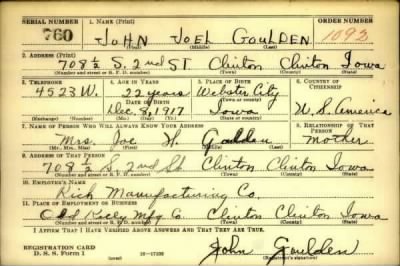 SERIAL NUMBER 1. NAME (Print) ORDER NUMBER
760 JOHN JOEL GOULDEN 1092
(First) (Middle) (Last)
2. ADDRESS (Print)
708½ S. 2nd ST Clinton Clinton Iowa
(Number and street or R. F. D. number) (Town) (County) (State)
3. TELEPHONE 4. AGE IN YEARS 5. PLACE OF BIRTH 6. COUNTRY OF CITIZENSHIP
4523W. 22 years Webster City
DATE OF BIRTH (Town or county)
Dec. 8, 1917 Iowa U. S. America
(Exchange) (Number) (Mo.) (Day) (Yr.) (State or country)
7. NAME OF PERSON WHO WILL ALWAYS KNOW YOUR ADDRESS 8. RELATIONSHIP OF THAT PERSON
Mrs. Joe H. Goulden Mother
(Mr., Mrs., Miss) (First) (Middle) (Last)
9. ADDRESS OF THAT PERSON
708½ S. 2nd St Clinton Clinton Iowa
(Number and street or R. F. D. number) (Town) (County) (State)
10. EMPLOYER'S NAME
Rich Manufacturing Co.
11. PLACE OF EMPLOYMENT OR BUSINESS
Old Mfg. Co. Clinton Clinton Iowa
(Number and street or R. F. D. number) (Town) (County) (State)
I AFFIRM THAT I HAVE VERIFIED ABOVE ANSWERS AND THAT THEY ARE TRUE.
REGISTRATION CARD
D. S. S. Form 1 (over) 16—17105 John Goulden
(Registrant's signature)